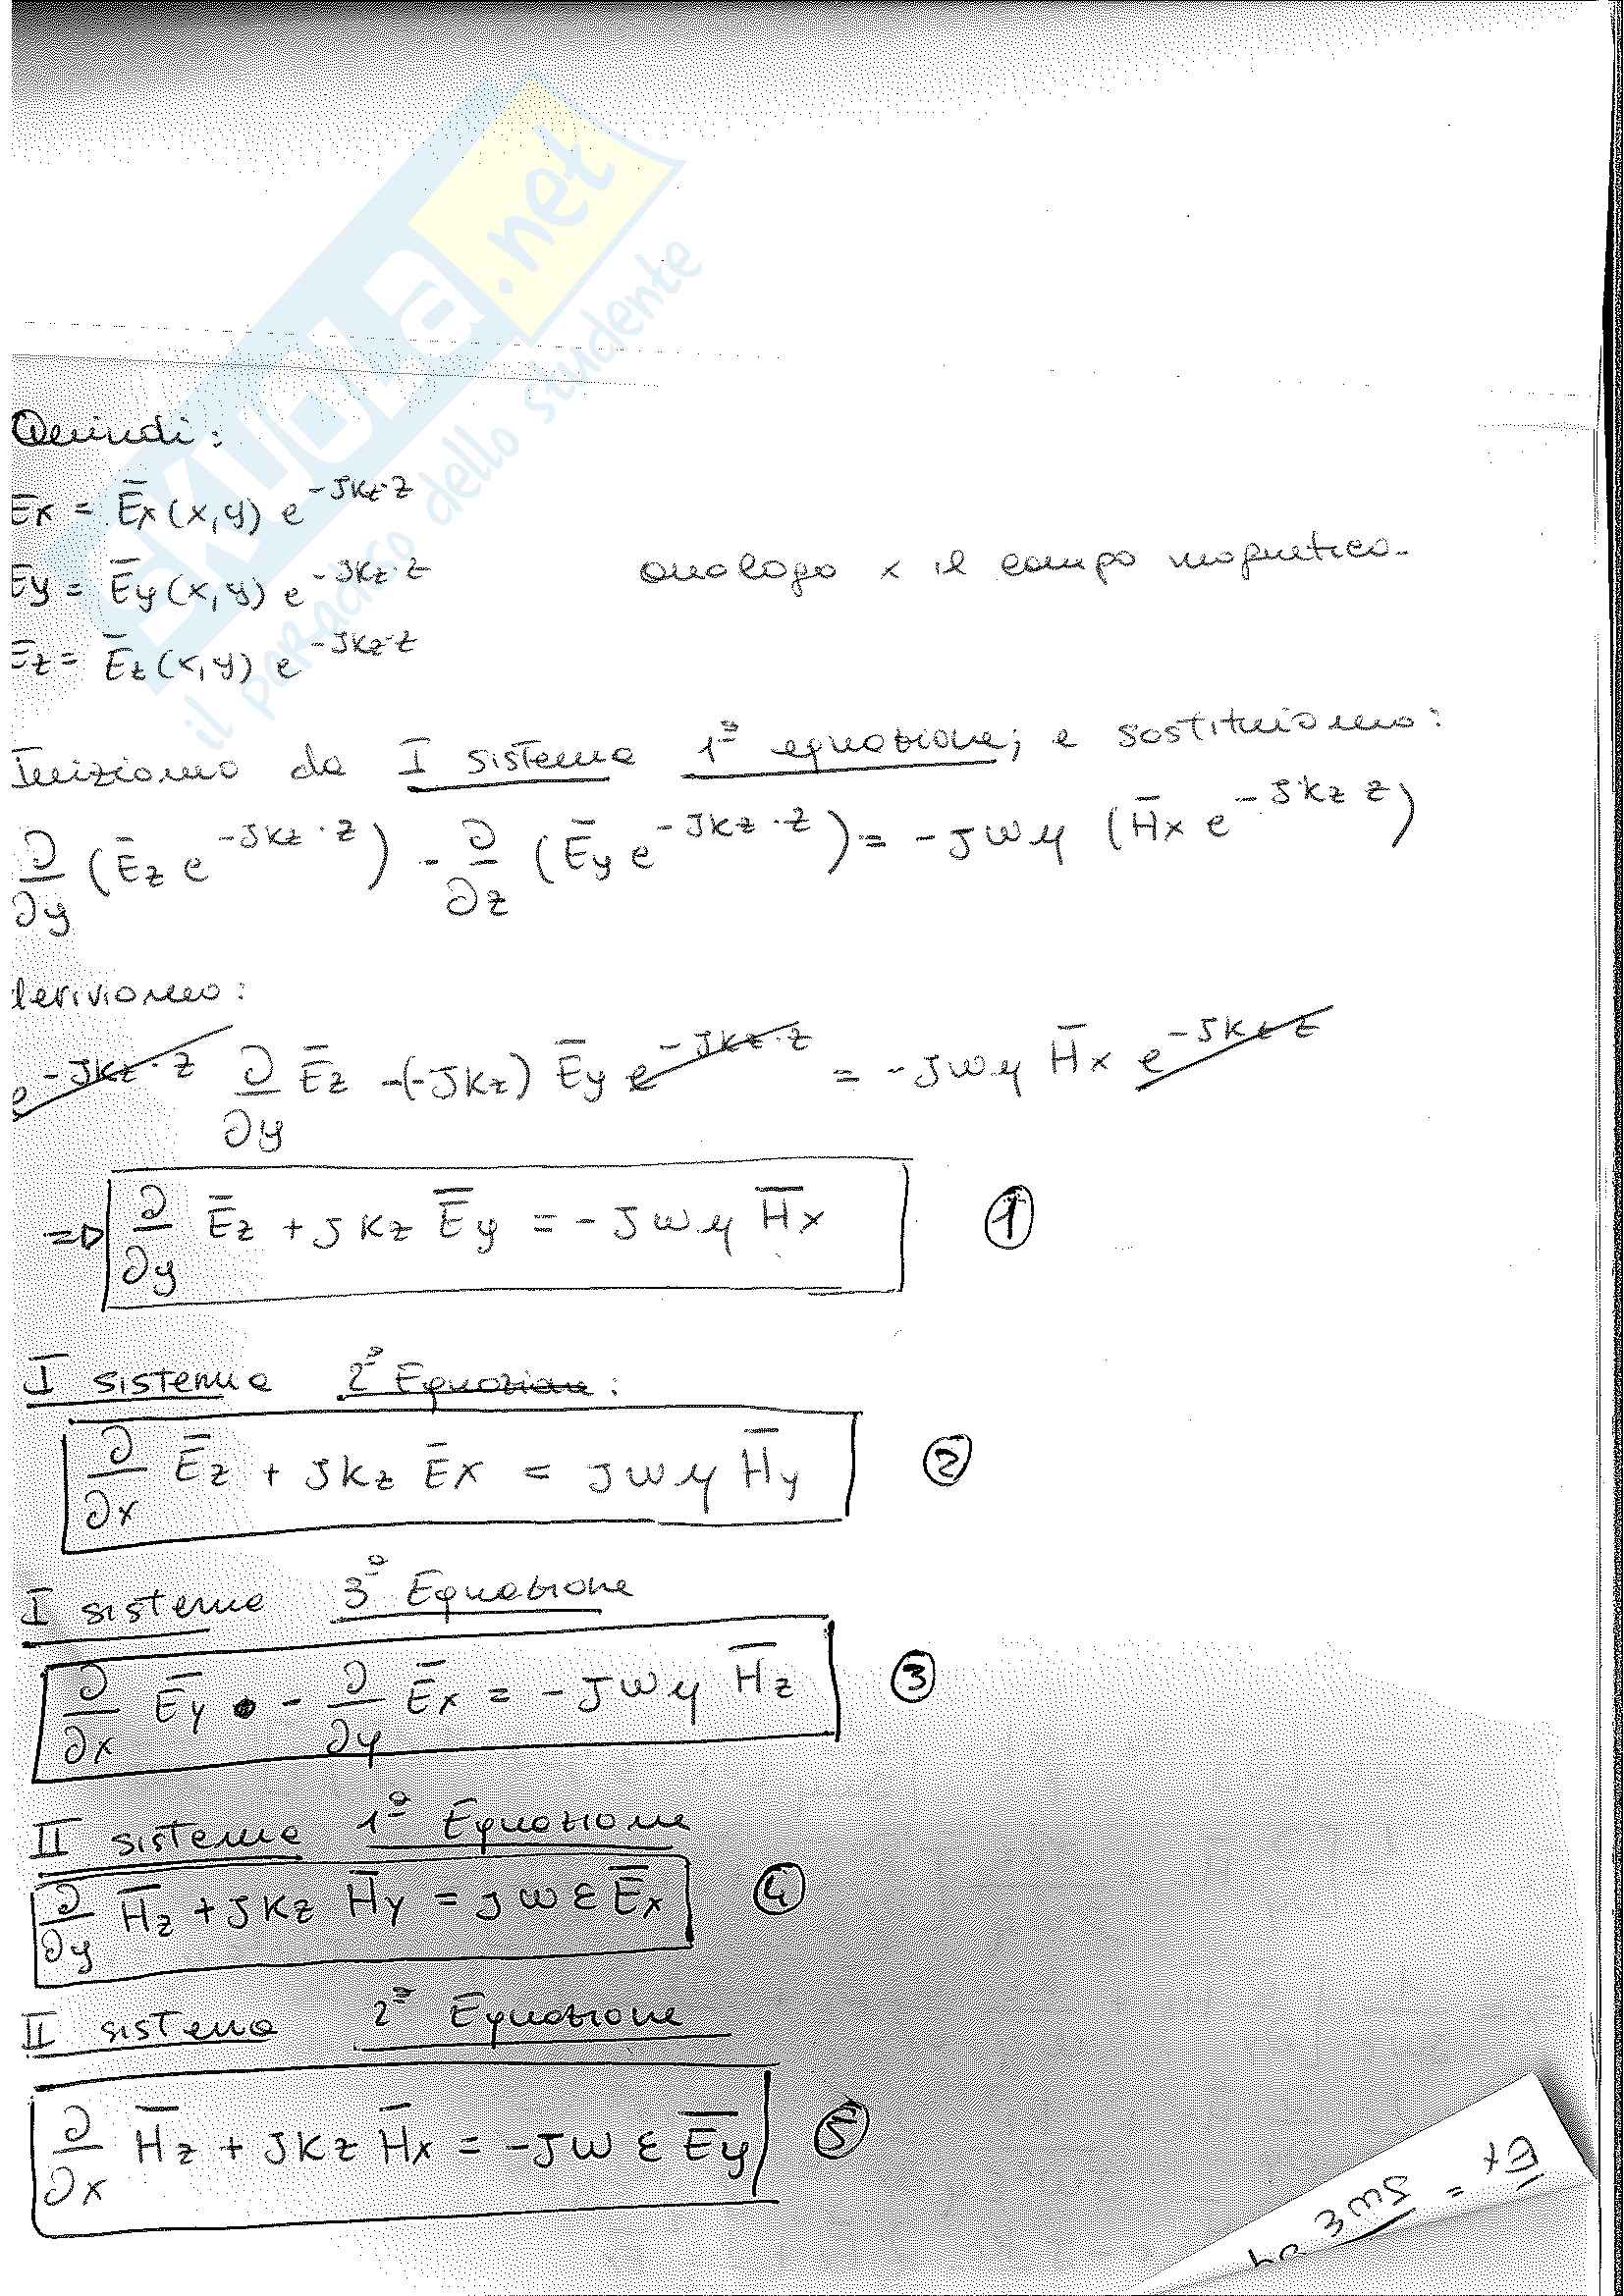 SKUOLA.net
il paradiso dello studente
Quindi:
Ex = Ēx(x,y) e^{-Jkz·z}
Ey = Ēy(x,y) e^{-Jkz·z} analogo x il campo magnetico.
Ez = Ēz(x,y) e^{-Jkz·z}
Iniziamo da I sistema 1ª equazione; e sostituiamo:
∂/∂y (Ēz e^{-Jkz·z}) - ∂/∂z (Ēy e^{-Jkz·z}) = -Jωμ (H̄x e^{-Jkz z})
deriviamo:
e^{-Jkz·z} ∂/∂y Ēz -(-Jkz) Ēy e^{-Jkz·z} = -Jωμ H̄x e^{-Jkz z}
=> ∂/∂y Ēz + Jkz Ēy = -Jωμ H̄x ①
I sistema 2ª Equazione:
∂/∂x Ēz + Jkz Ēx = Jωμ H̄y ②
I sistema 3ª Equazione
∂/∂x Ēy - ∂/∂y Ēx = -Jωμ H̄z ③
II sistema 1ª Equazione
∂/∂y H̄z + Jkz H̄y = Jωε Ēx ④
II sistema 2ª Equazione
∂/∂x H̄z + Jkz H̄x = -Jωε Ēy ⑤
Ex = Jωε